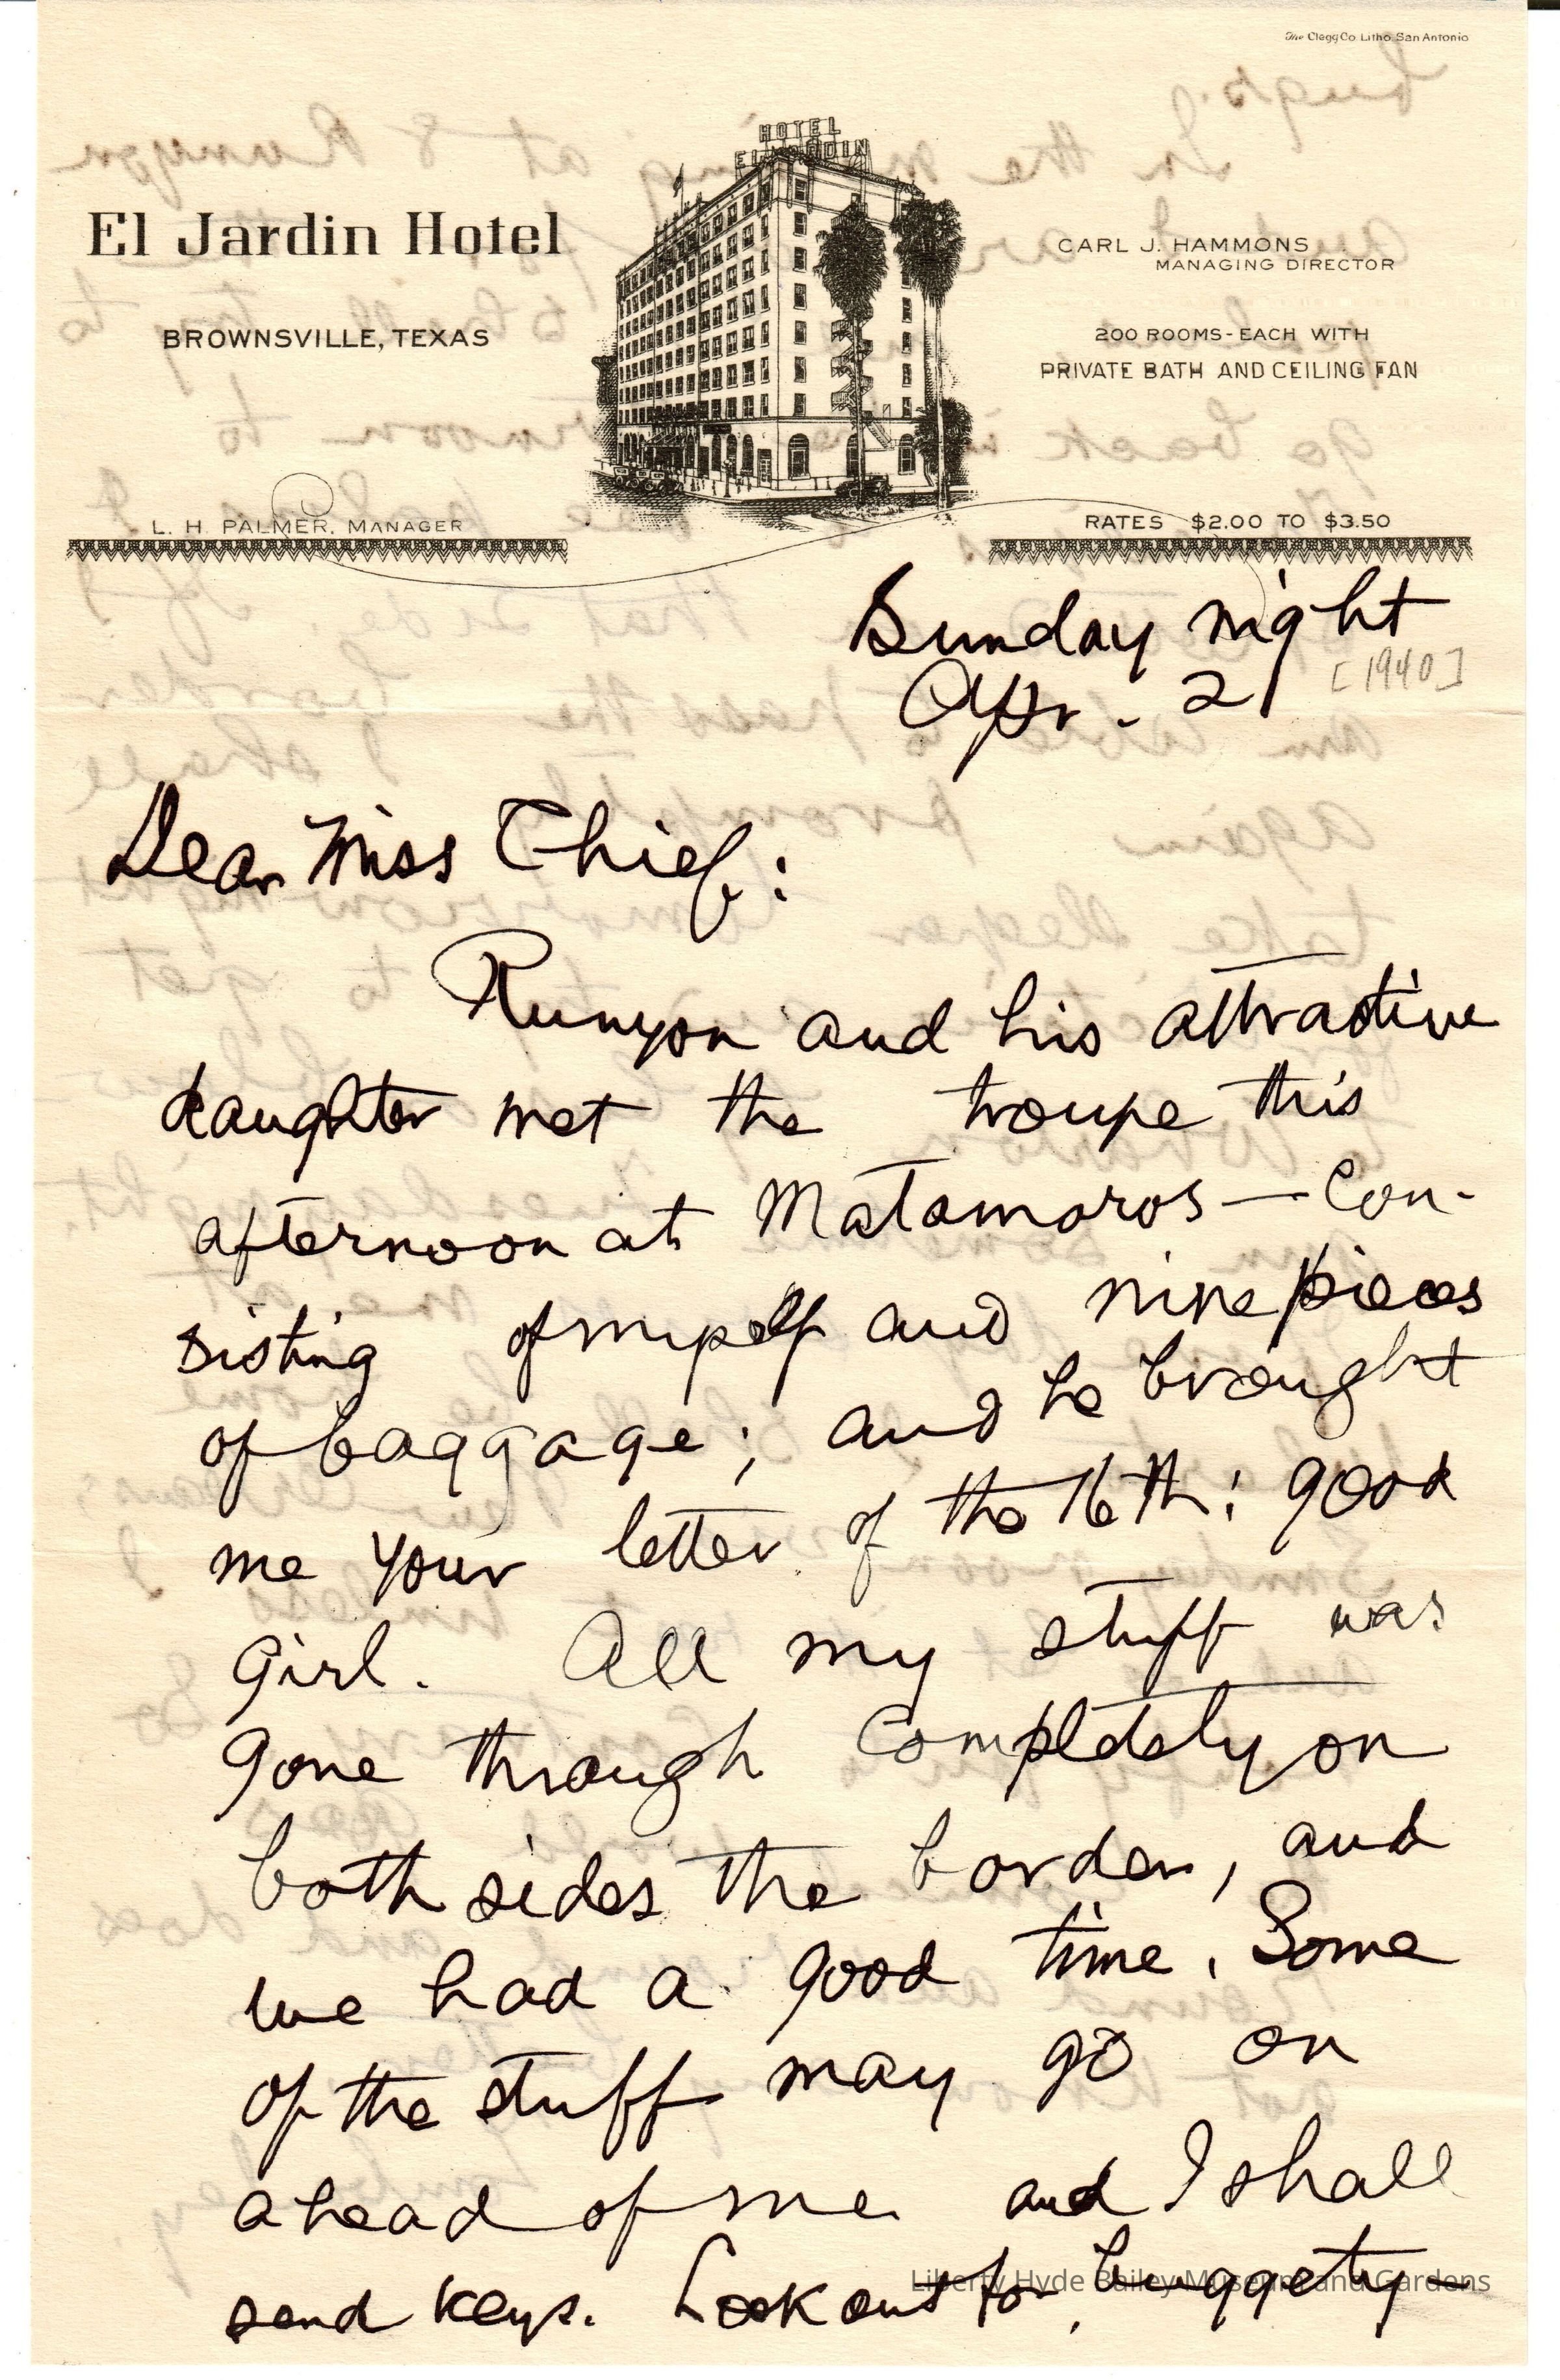 The Clegg Co Litho. San Antonio
HOTEL
EL JARDIN
El Jardin Hotel
BROWNSVILLE, TEXAS
CARL J. HAMMONS
MANAGING DIRECTOR
200 ROOMS - EACH WITH
PRIVATE BATH AND CEILING FAN
L. H. PALMER, MANAGER
RATES $2.00 TO $3.50
Sunday night
Apr. 21 [1940]
Dear Miss Chief:
Runyon and his attractive
daughter met the troupe this
afternoon at Matamoros — con-
sisting of myself and nine pieces
of baggage; and he brought
me your letter of the 16th: good
girl. All my stuff was
gone through completely on
both sides the border, and
we had a good time. Some
of the stuff may go on
ahead of me and I shall
send keys. Look out for buggety-
Liberty Hyde Bailey Museum and Gardens